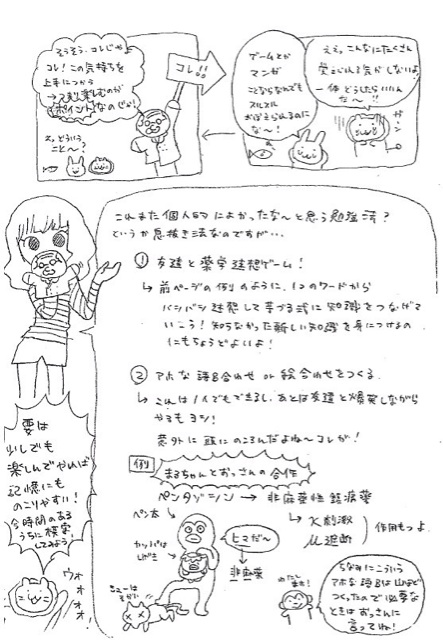 ええっこんなにたくさん
覚えられる気がしないよ
一体どうしたらいいんだ
な〜!!
ガーン
ゲームとか
マンガ
ことならなんでも
スルスル
おぼえられるのに
な〜!
コレ!!
そうそう、コレじゃよ
コレ!この気持ちを
上手につかう
→つまり楽しむのが
ポイントなのじゃ!
え、どういう
こと〜?
これまた個人的によかったな〜と思う勉強法?
というか息抜き法なのですが…
① 友達と薬学連想ゲーム!
↳ 前ページの例のように、1つのワードから
バシバシ連想して芋づる式に知識をつなげて
いこう!知らなかった新しい知識を身につけるの
にもちょうどよいよ!
② アホな語呂合わせ or 絵合わせをつくる
↳ これは1人でもできるし、あとは友達と爆笑しながら
やるもヨシ!
意外に頭にのこるんだよね〜コレが!
例 まるちゃんとおっさんの合作
ペンタゾシン → 非麻薬性鎮痛薬
↳ κ刺激
μ遮断
作用もつよ。
ペン太
カッパは
しげき
ヒマだ〜
非麻薬
ちなみにこういう
アホな語呂は山ほど
つくったので必要な
ときはおっさんに
言ってね!
要は
少しでも
楽しんでやれば
記憶にも
のこりやすい!
今時間のある
うちに模索
してみよう!
ウォォォォ